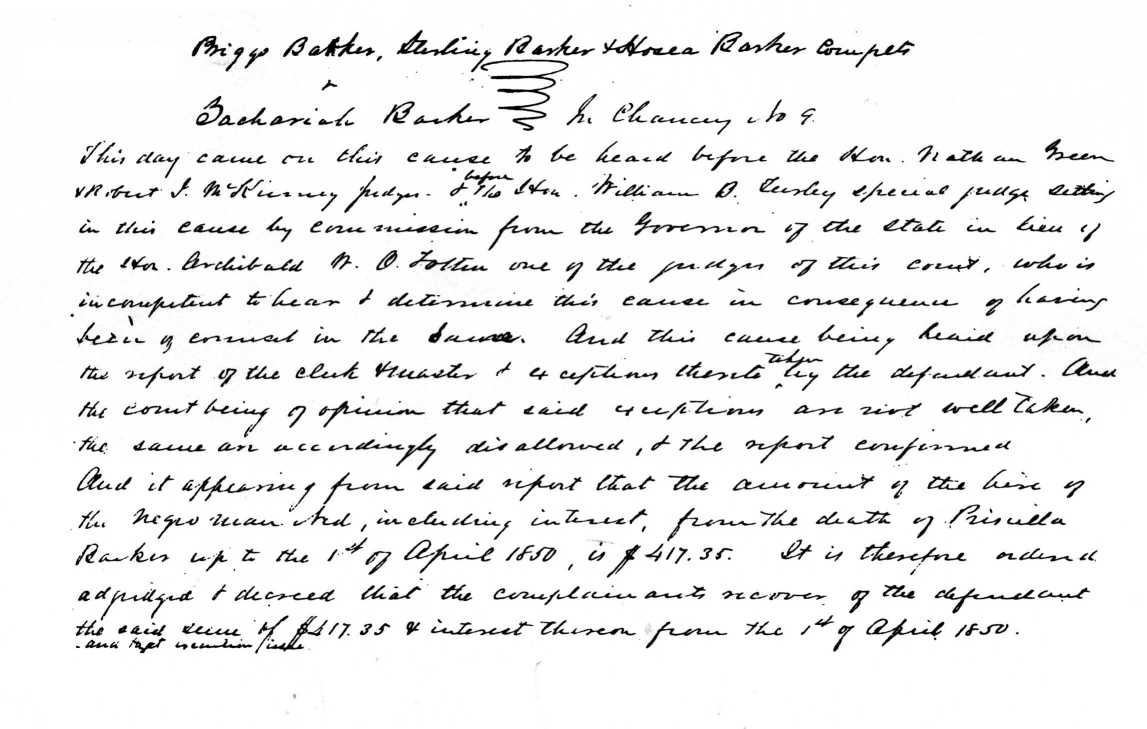 Briggs Barker, Sterling Barker & Hosea Barker Complts
v
Zachariah Barker In Chancery No 9.
This day came on this cause to be heard before the Hon. Nathan Green
& Robert J. McKinney judges - & before The Hon. William B. Turley special judge setting
in this cause by commission from the Governor of the State in lieu of
the Hon. Archibald W. O. Totten one of the judges of this court, who is
incompetent to hear & determine this cause in consequence of having
been of counsel in the same. And this cause being heard upon
the report of the clerk & master & exceptions thereto taken by the defendant. And
the court being of opinion that said exceptions are not well taken,
the same are accordingly disallowed, & the report confirmed
And it appearing from said report that the amount of the hire of
the negro man Ned, including interest, from the death of Priscilla
Barker up to the 1st of April 1850, is $417.35. It is therefore ordered
adjudged & decreed that the complainants recover of the defendant
the said sum of $417.35 & interest thereon from the 1st of April 1850.
and that execution issue